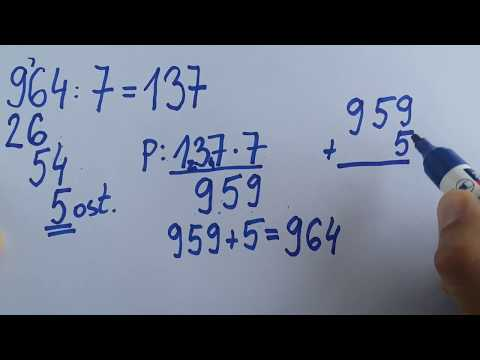 964:7=137
26
54
5 ost.
P: 137·7
959
959+5=964
959
+ 5